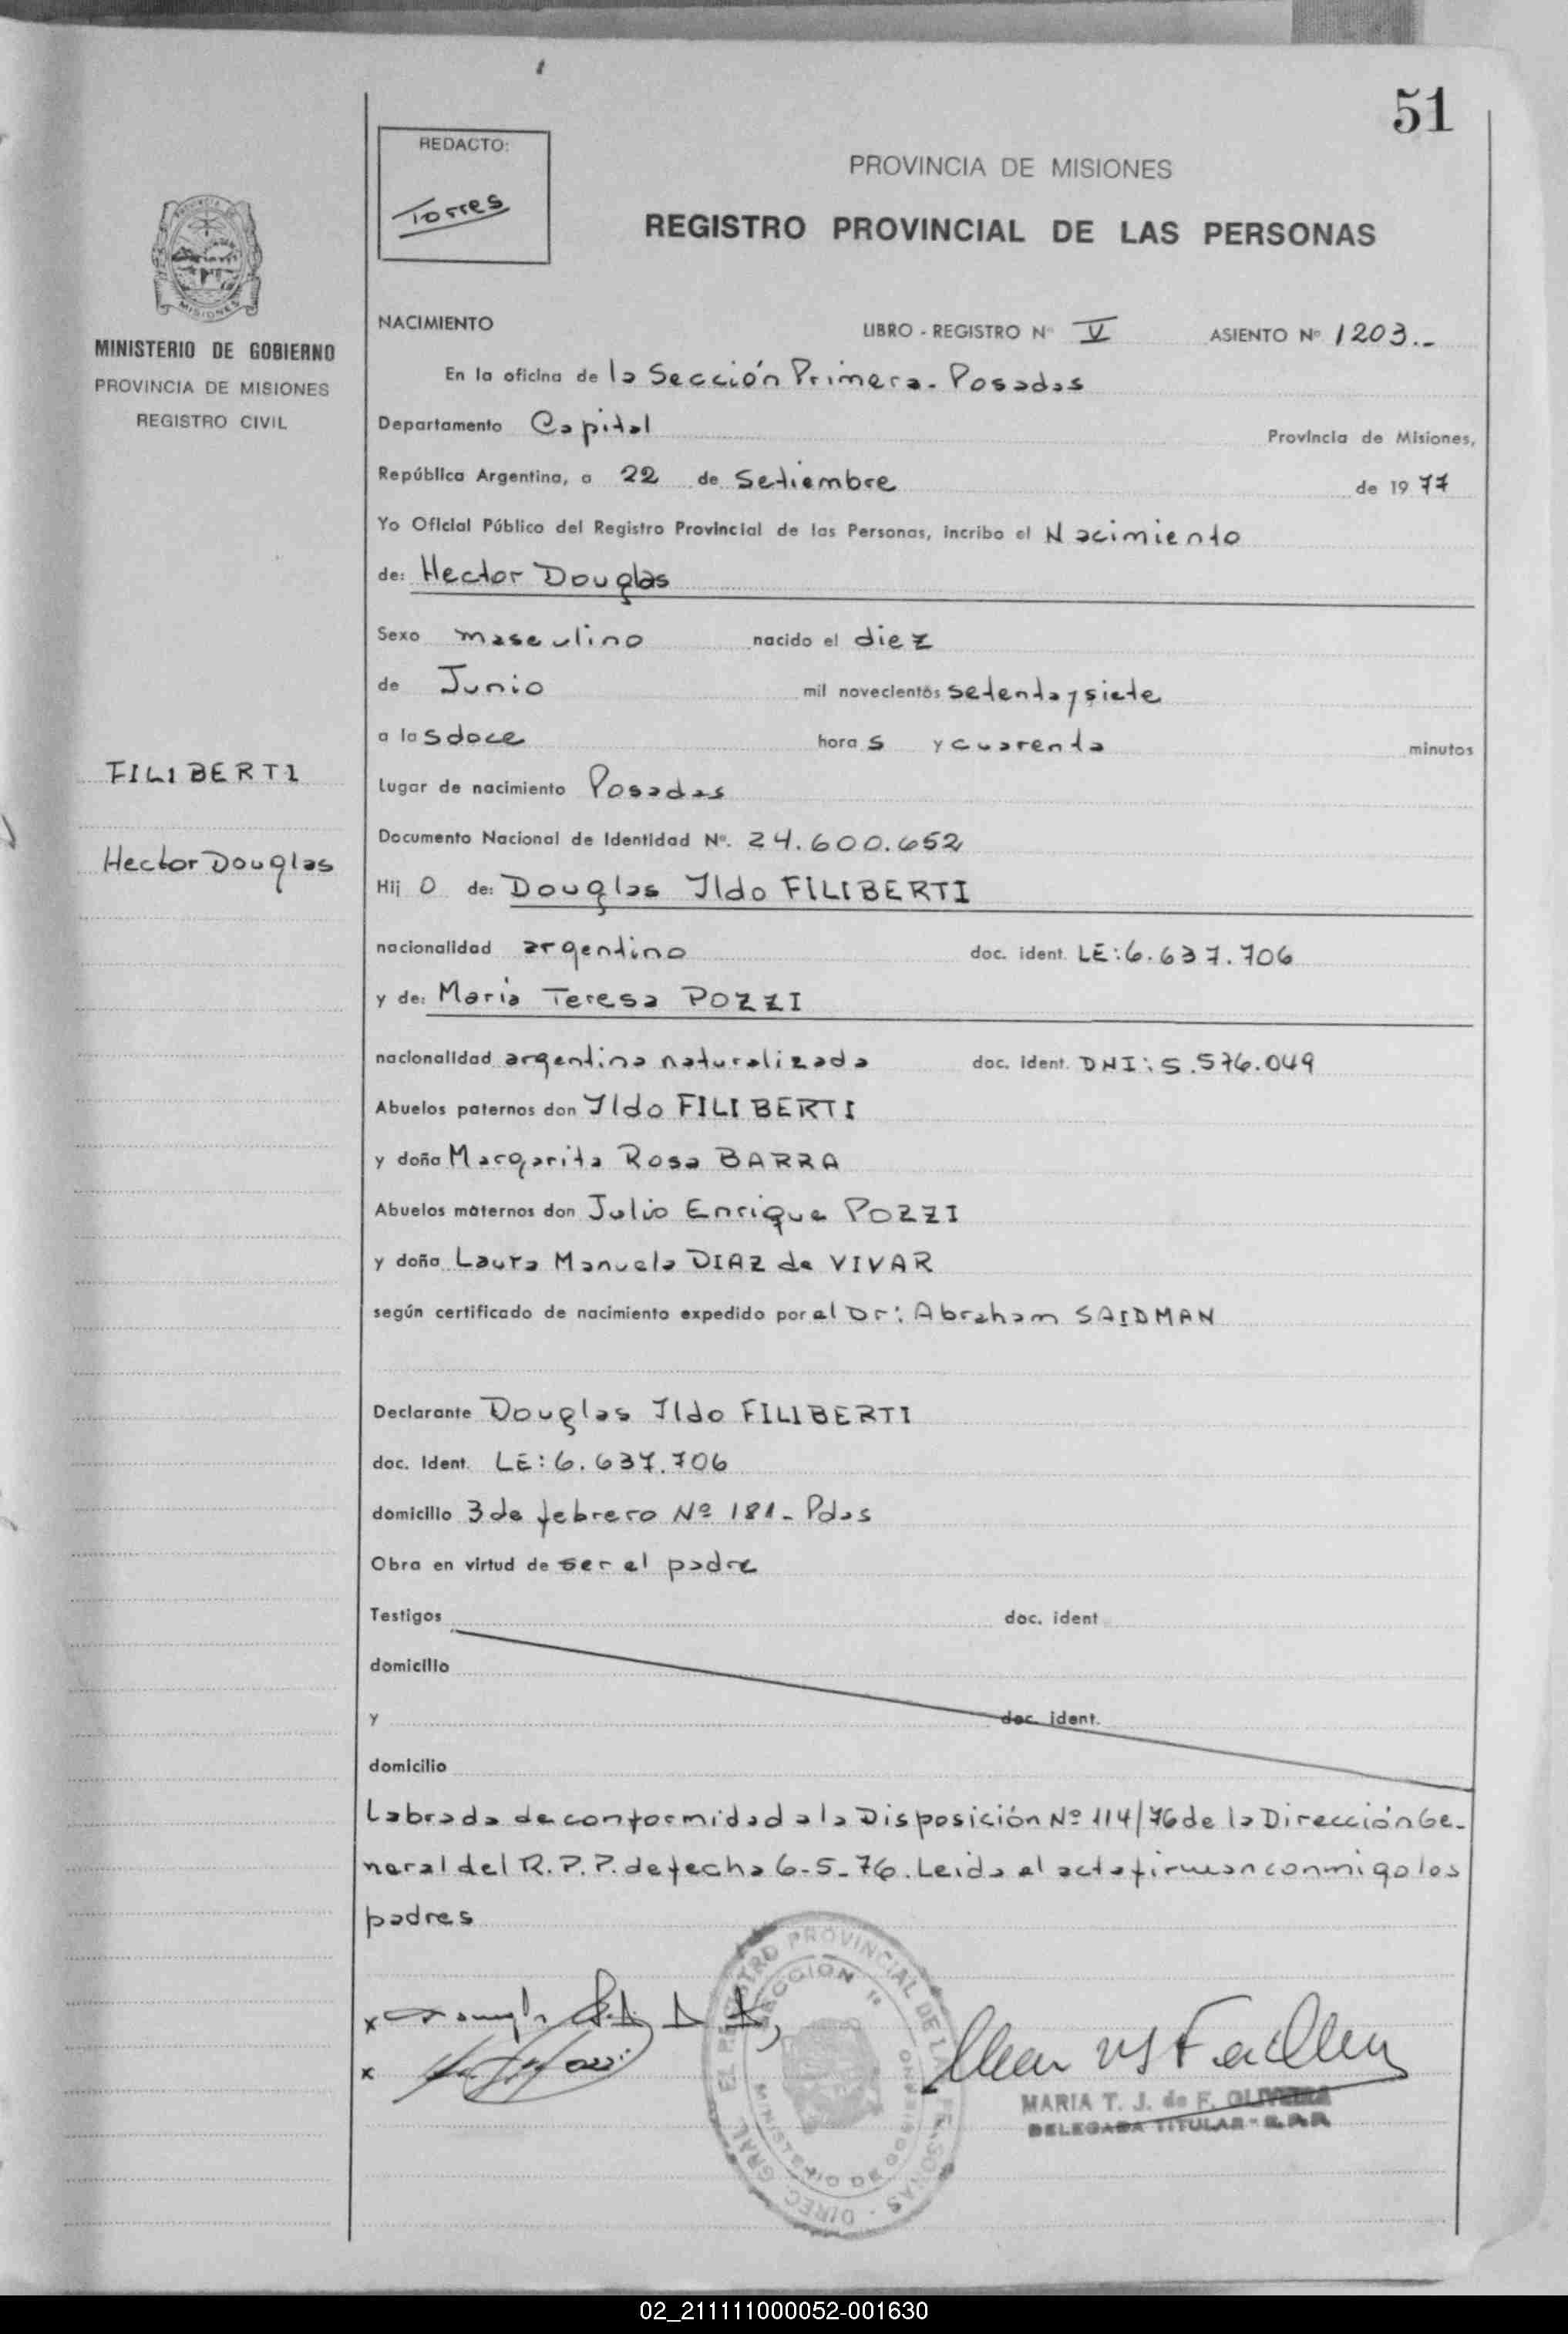 51
REDACTO:
Torres
PROVINCIA DE MISIONES
REGISTRO PROVINCIAL DE LAS PERSONAS
MISIONES
MINISTERIO DE GOBIERNO
PROVINCIA DE MISIONES
REGISTRO CIVIL
FILIBERTI
Hector Douglas
NACIMIENTO LIBRO - REGISTRO Nº V ASIENTO Nº 1203.-
En la oficina de la Sección Primera - Posadas
Departamento Capital Provincia de Misiones,
República Argentina, a 22 de Setiembre de 1977
Yo Oficial Público del Registro Provincial de las Personas, incribo el Nacimiento
de: Hector Douglas
Sexo masculino nacido el diez
de Junio mil novecientos setenta y siete
a las doce horas y cuarenta minutos
Lugar de nacimiento Posadas
Documento Nacional de Identidad Nº. 24.600.652
Hij o de: Douglas Ildo FILIBERTI
nacionalidad argentino doc. ident. LE: 6.637.706
y de: Maria Teresa POZZI
nacionalidad argentina naturalizada doc. ident. DNI: 5.576.049
Abuelos paternos don Ildo FILIBERTI
y doña Margarita Rosa BARRA
Abuelos maternos don Julio Enrique POZZI
y doña Laura Manuela DIAZ de VIVAR
según certificado de nacimiento expedido por el Dr: Abraham SAIDMAN
Declarante Douglas Ildo FILIBERTI
doc. Ident. LE: 6.637.706
domicilio 3 de febrero Nº 181 - Pdas
Obra en virtud de ser el padre
Testigos doc. ident
domicilio
y doc. ident.
domicilio
Labrada de conformidad a la Disposición Nº 114/76 de la Dirección Ge-
neral del R.P.P. de fecha 6-5-76. Leida el acta firman conmigo los
padres
x
x
DIREC. GRAL. DEL REGISTRO PROVINCIAL DE LAS PERSONAS
SECCION 1ª
MINISTERIO DE GOBIERNO
MARIA T. J. de F. OLIVEIRA
DELEGADA TITULAR - R.P.P.
02_211111000052-001630